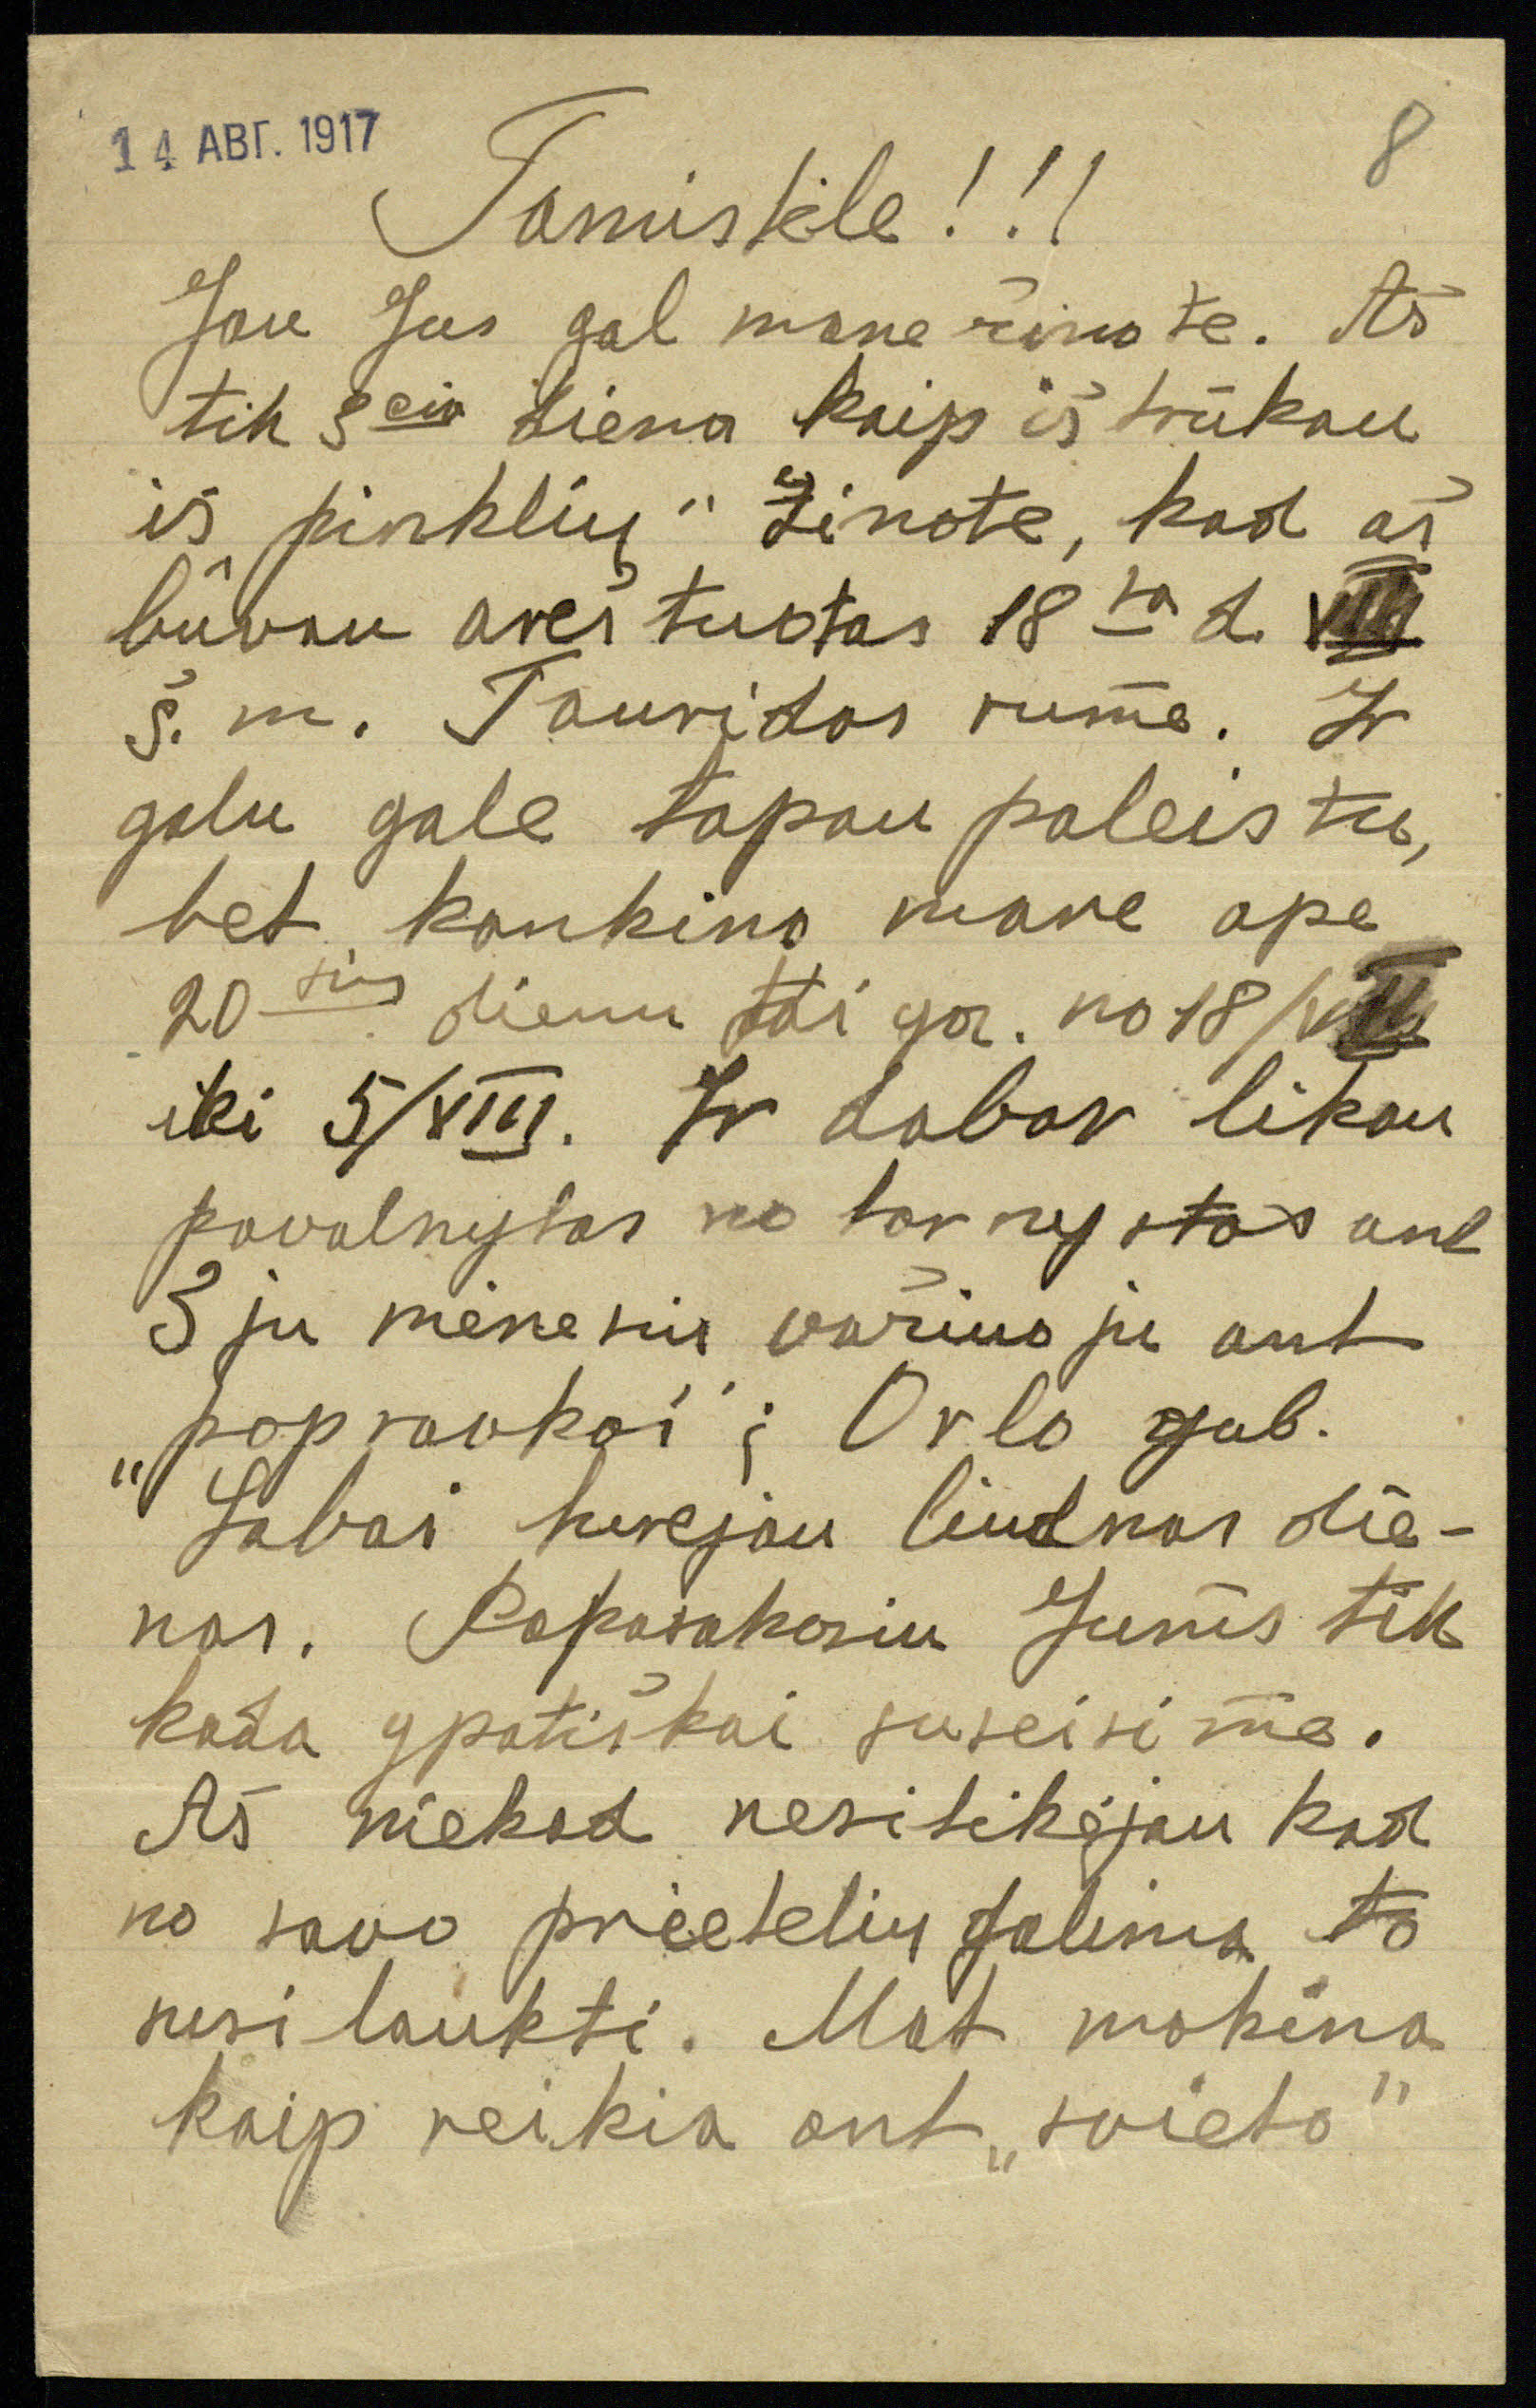 14 АВГ. 1917
8
Tamistėle!!!
Jau Jus gal mane žinote. Aš
tik 3čia diena kaip ištrūkau
iš pinklių" Žinote, kad aš
būvau areštuotas 18ta d. VII
š. m. Tauridos rume. Ir
galu gale tapau paleistu,
bet kankino mane ape
20sius dienu tai ga. no 18/VII
iki 5/VIII. Ir dabar likau
pavalnytas no tarnystos ant
3ju mėnesiu važiuoju ant
„popravkai"; Orlo gub.
Labai turejau liudnas die-
nas. Papasakosiu Jums tik
kada ypatiškai suseisime.
Aš niekad nesitikėjau kad
no savo prietelių galima to
susilaukti. Mat mokina
kaip reikia ant „svieto"